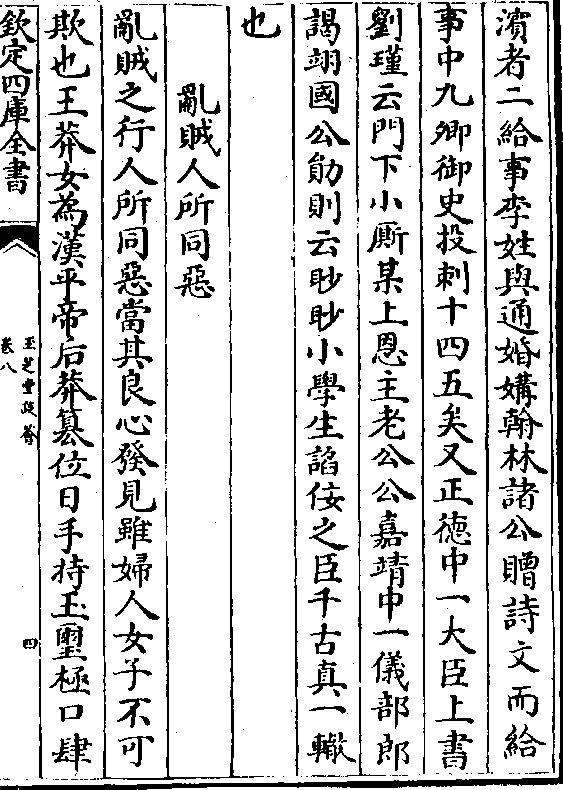 濵者二給事李姓與通婚媾翰林諸公贈詩文而給
事中九卿御史投刺十四五矣又正德中一大臣上書
劉瑾云門下小厮某上恩主老公公嘉靖中一儀部郎
謁翊國公勛則云眇眇小學生諂佞之臣千古真一轍
也
亂賊人所同惡
亂賊之行人所同惡當其良心發見雖婦人女子不可
欺也王莽女為漢平帝后莽簒位日手持玉璽極口肆
欽定四庫全書
玉芝堂談薈
卷八
四